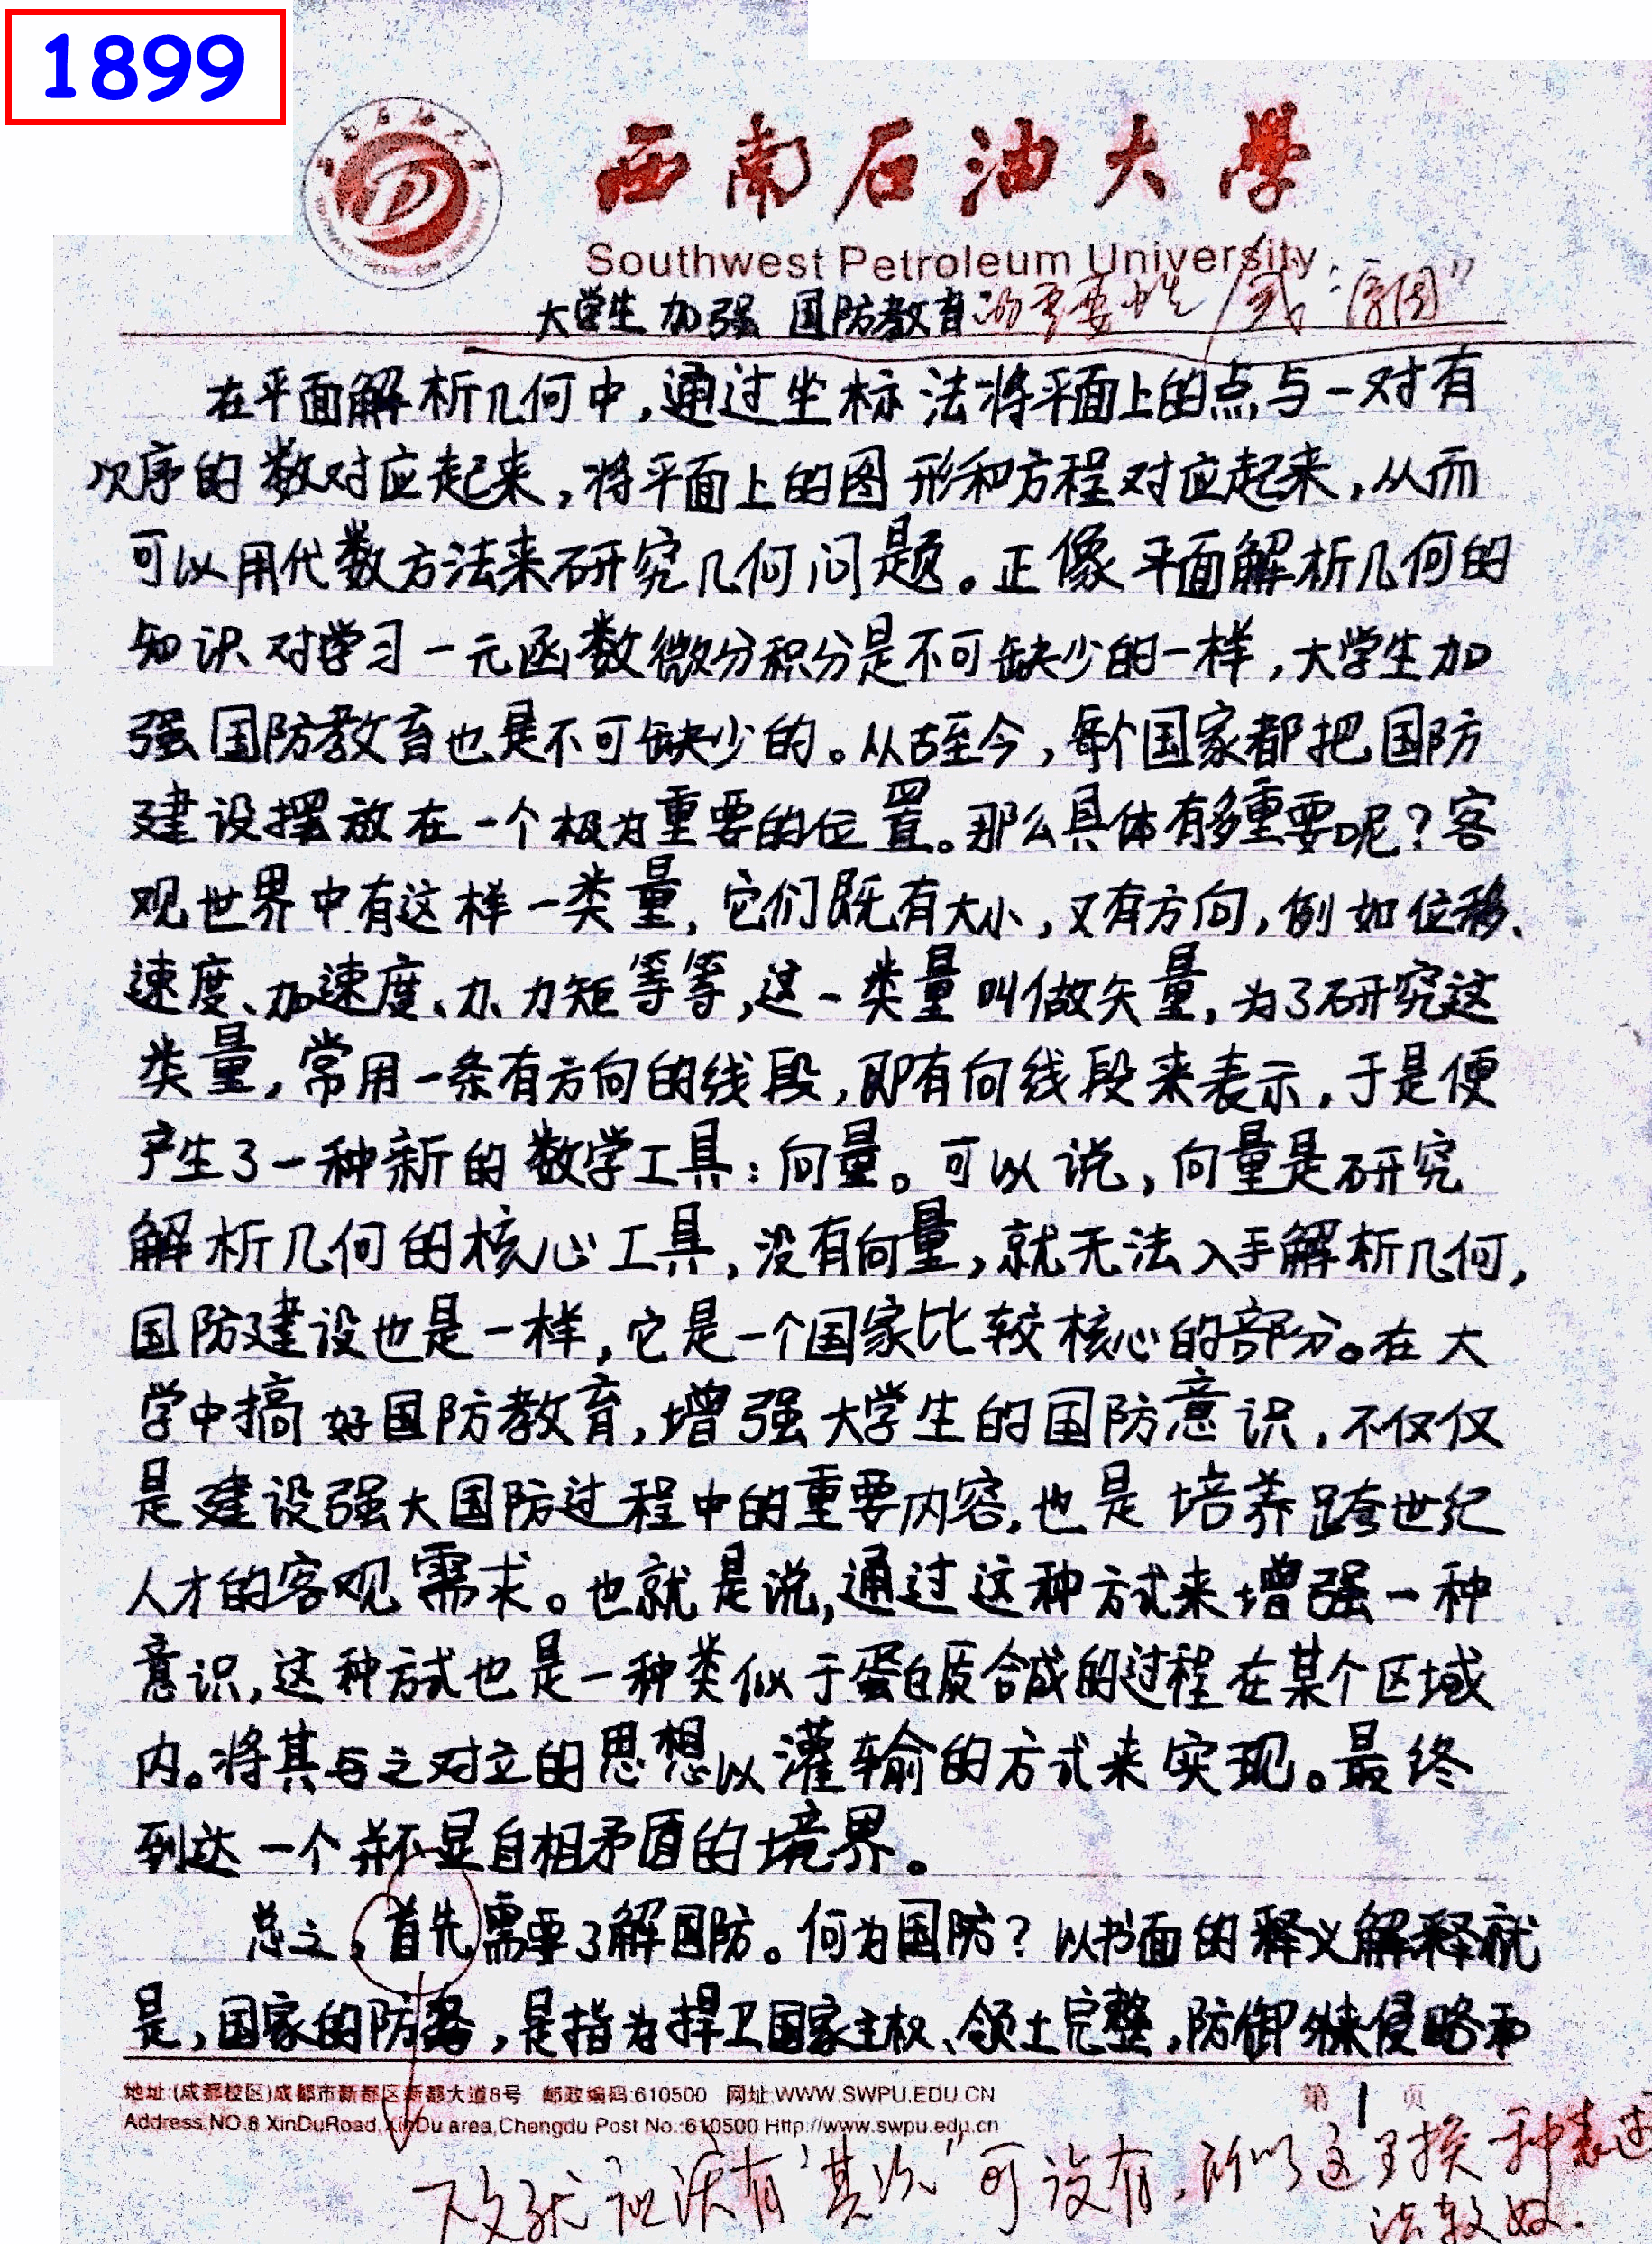 1899
西南石油大学
Southwest Petroleum University
大学生加强国防教育的重要性/或:"原因"
在平面解析几何中,通过坐标法将平面上的点与一对有
次序的数对应起来,将平面上的图形和方程对应起来,从而
可以用代数方法来研究几何问题。正像平面解析几何的
知识对学习一元函数微分积分是不可缺少的一样,大学生加
强国防教育也是不可缺少的。从古至今,每个国家都把国防
建设摆放在一个极为重要的位置。那么具体有多重要呢?客
观世界中有这样一类量,它们既有大小,又有方向,例如位移、
速度、加速度、力、力矩等等,这一类量叫做矢量,为了研究这
类量,常用一条有方向的线段,即有向线段来表示,于是便
产生了一种新的数学工具:向量。可以说,向量是研究
解析几何的核心工具,没有向量,就无法入手解析几何,
国防建设也是一样,它是一个国家比较核心的部分。在大
学中搞好国防教育,增强大学生的国防意识,不仅仅
是建设强大国防过程中的重要内容,也是培养跨世纪
人才的客观需求。也就是说,通过这种方式来增强一种
意识,这种方式也是一种类似于蛋白质合成的过程在某个区域
内。将其与之对立的思想以灌输的方式来实现。最终
到达一个并不显自相矛盾的境界。
总之,首先需要了解国防。何为国防?以书面的释义解释就
是,国家的防务,是指为捍卫国家主权、领土完整,防御外来侵略和
地址:(成都校区)成都市新都区新都大道8号 邮政编码:610500 网址:WWW.SWPU.EDU.CN
第1页
Address:NO.8 XinDuRoad,XinDu area,Chengdu Post No.:610500 Http://www.swpu.edu.cn
下文就应该有"其次"可没有,所以这里换一种表述
法较好.